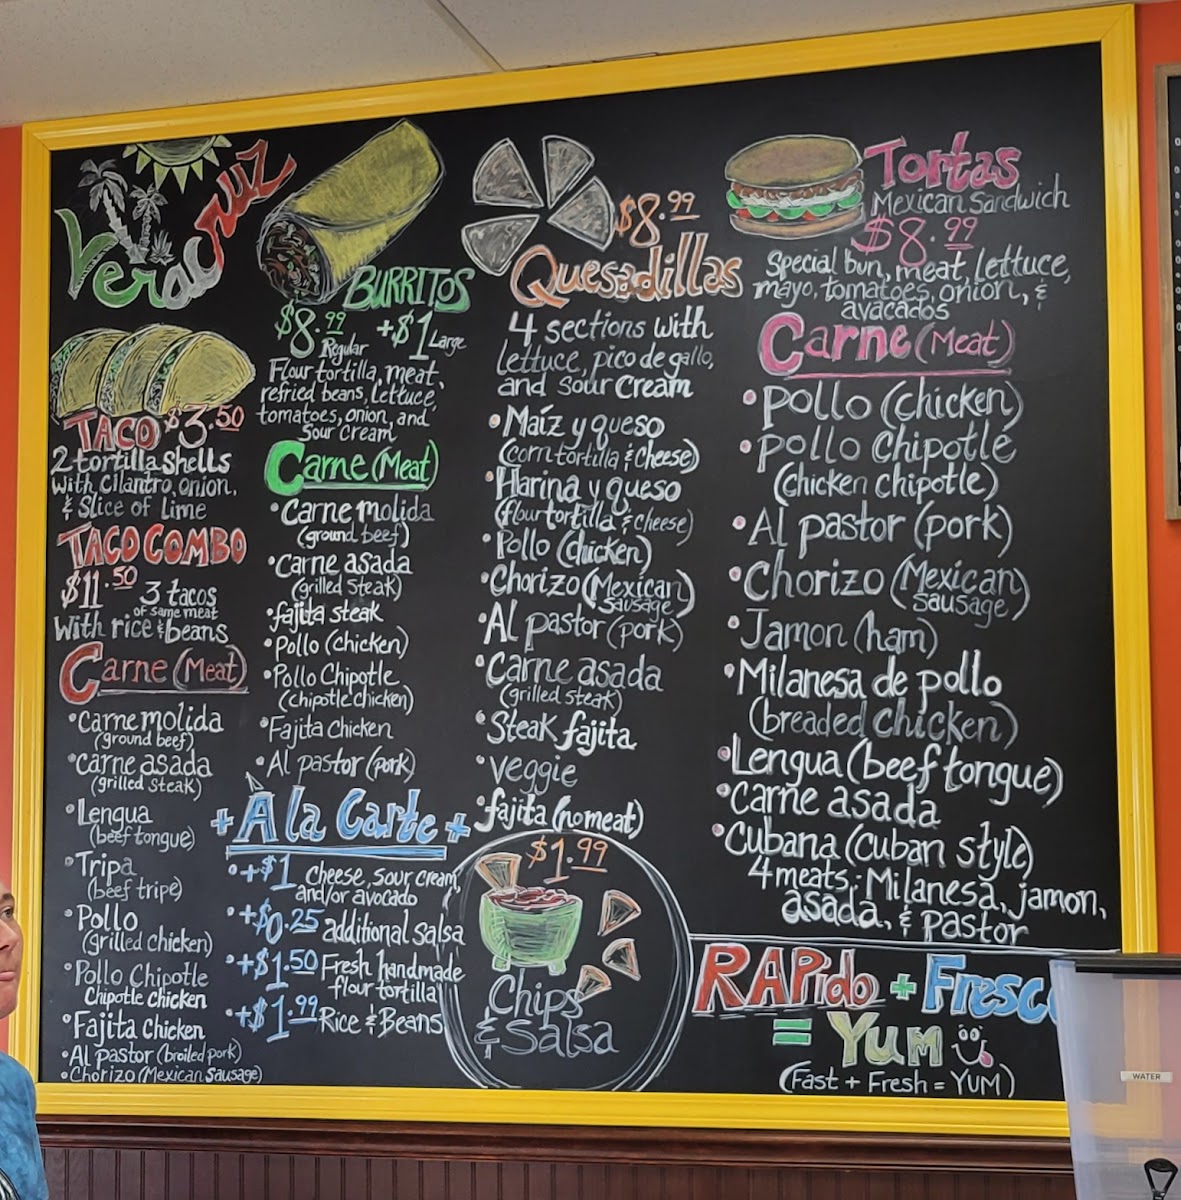 Veracruz
TACO $3.50
2 tortilla shells
with cilantro, onion,
& slice of lime
TACO COMBO
$11.50 3 tacos
of same meat
with rice & beans
Carne (Meat)
• Carne molida
(ground beef)
• Carne asada
(grilled steak)
• Lengua
(beef tongue)
• Tripa
(beef tripe)
• Pollo
(grilled chicken)
• Pollo Chipotle
Chipotle chicken
• Fajita chicken
• Al pastor (broiled pork)
• Chorizo (Mexican Sausage)
BURRITOS
$8.99 +$1 Large
Regular
Flour tortilla, meat,
refried beans, lettuce,
tomatoes, onion, and
sour cream
Carne (Meat)
• Carne molida
(ground beef)
• Carne asada
(grilled steak)
• fajita steak
• Pollo (chicken)
• Pollo Chipotle
(chipotle chicken)
• Fajita Chicken
• Al pastor (pork)
+ À la Carte +
• +$1 cheese, sour cream,
and/or avocado
• +$0.25 additional salsa
• +$1.50 Fresh handmade
flour tortilla
• +$1.99 Rice & Beans
$8.99
Quesadillas
4 sections with
lettuce, pico de gallo,
and sour cream
• Maíz y queso
(corn tortilla & cheese)
• Harina y queso
(flour tortilla & cheese)
• Pollo (chicken)
• Chorizo (Mexican
sausage)
• Al pastor (pork)
• Carne asada
(grilled steak)
• Steak fajita
• veggie
• fajita (no meat)
$1.99
Chips
& Salsa
Tortas
Mexican Sandwich
$8.99
Special bun, meat, lettuce,
mayo, tomatoes, onion, &
avacados
Carne (Meat)
• Pollo (chicken)
• Pollo Chipotle
(chicken chipotle)
• Al pastor (pork)
• Chorizo (Mexican
sausage)
• Jamon (ham)
• Milanesa de pollo
(breaded chicken)
• Lengua (beef tongue)
• Carne asada
• Cubana (Cuban style)
4 meats: Milanesa, jamon,
asada, & pastor
RAPido + Fresco
= Yum
(Fast + Fresh = YUM)
WATER